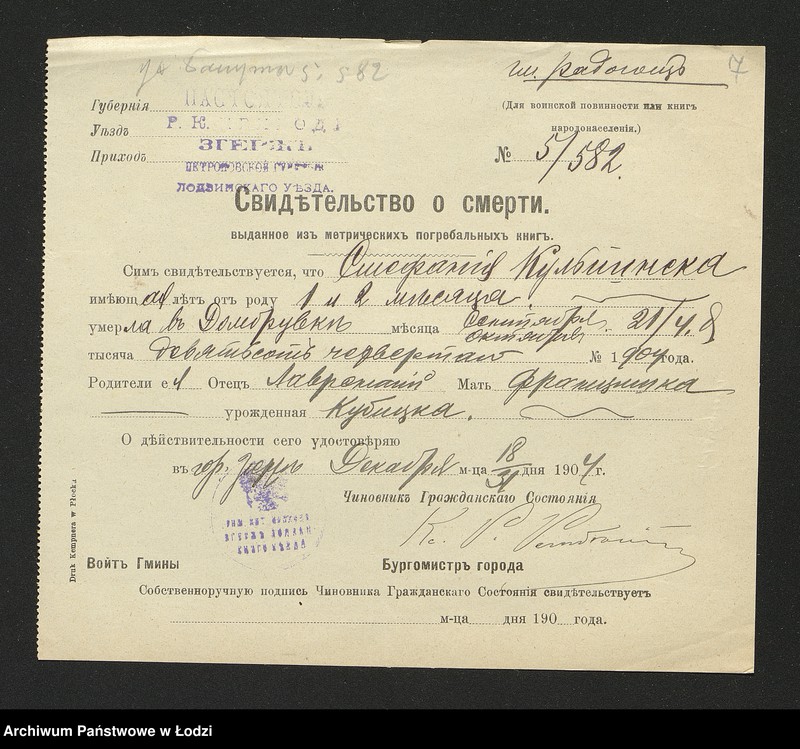 гм. Радогощъ 7
5/582
Губернія
Уѣздъ Р. К.
Приходъ ЗГЕРЖЪ
ПЕТРОКОВСКОЙ ГУБЕРНІИ
ЛОДЗИНСКАГО УѢЗДА.
(Для воинской повинности или книгъ
народонаселенія.)
№ 5/582.
Свидѣтельство о смерти.
выданное изъ метрическихъ погребальныхъ книгъ.
Симъ свидѣтельствуется, что Стефанія Кульпинска
имѣющая лѣтъ отъ роду 1 и 2 мѣсяца.
умерла въ Домбрувкѣ мѣсяца сентября 21/4.
октября
тысяча девятьсотъ четвертаго № 1904 года.
Родители ея Отецъ Мать Францишка
урожденная Кубицка.
О дѣйствительности сего удостовѣряю
въ гор. Згержѣ Декабря м-ца 18/31 дня 1904 г.
Чиновникъ Гражданскаго Состоянія
Войтъ Гмины Бургомистръ города
Собственноручную подпись Чиновника Гражданскаго Состоянія свидѣтельствуетъ
м-ца дня 190 года.
Druk Kempnera w Płocku
Archiwum Państwowe w Łodzi